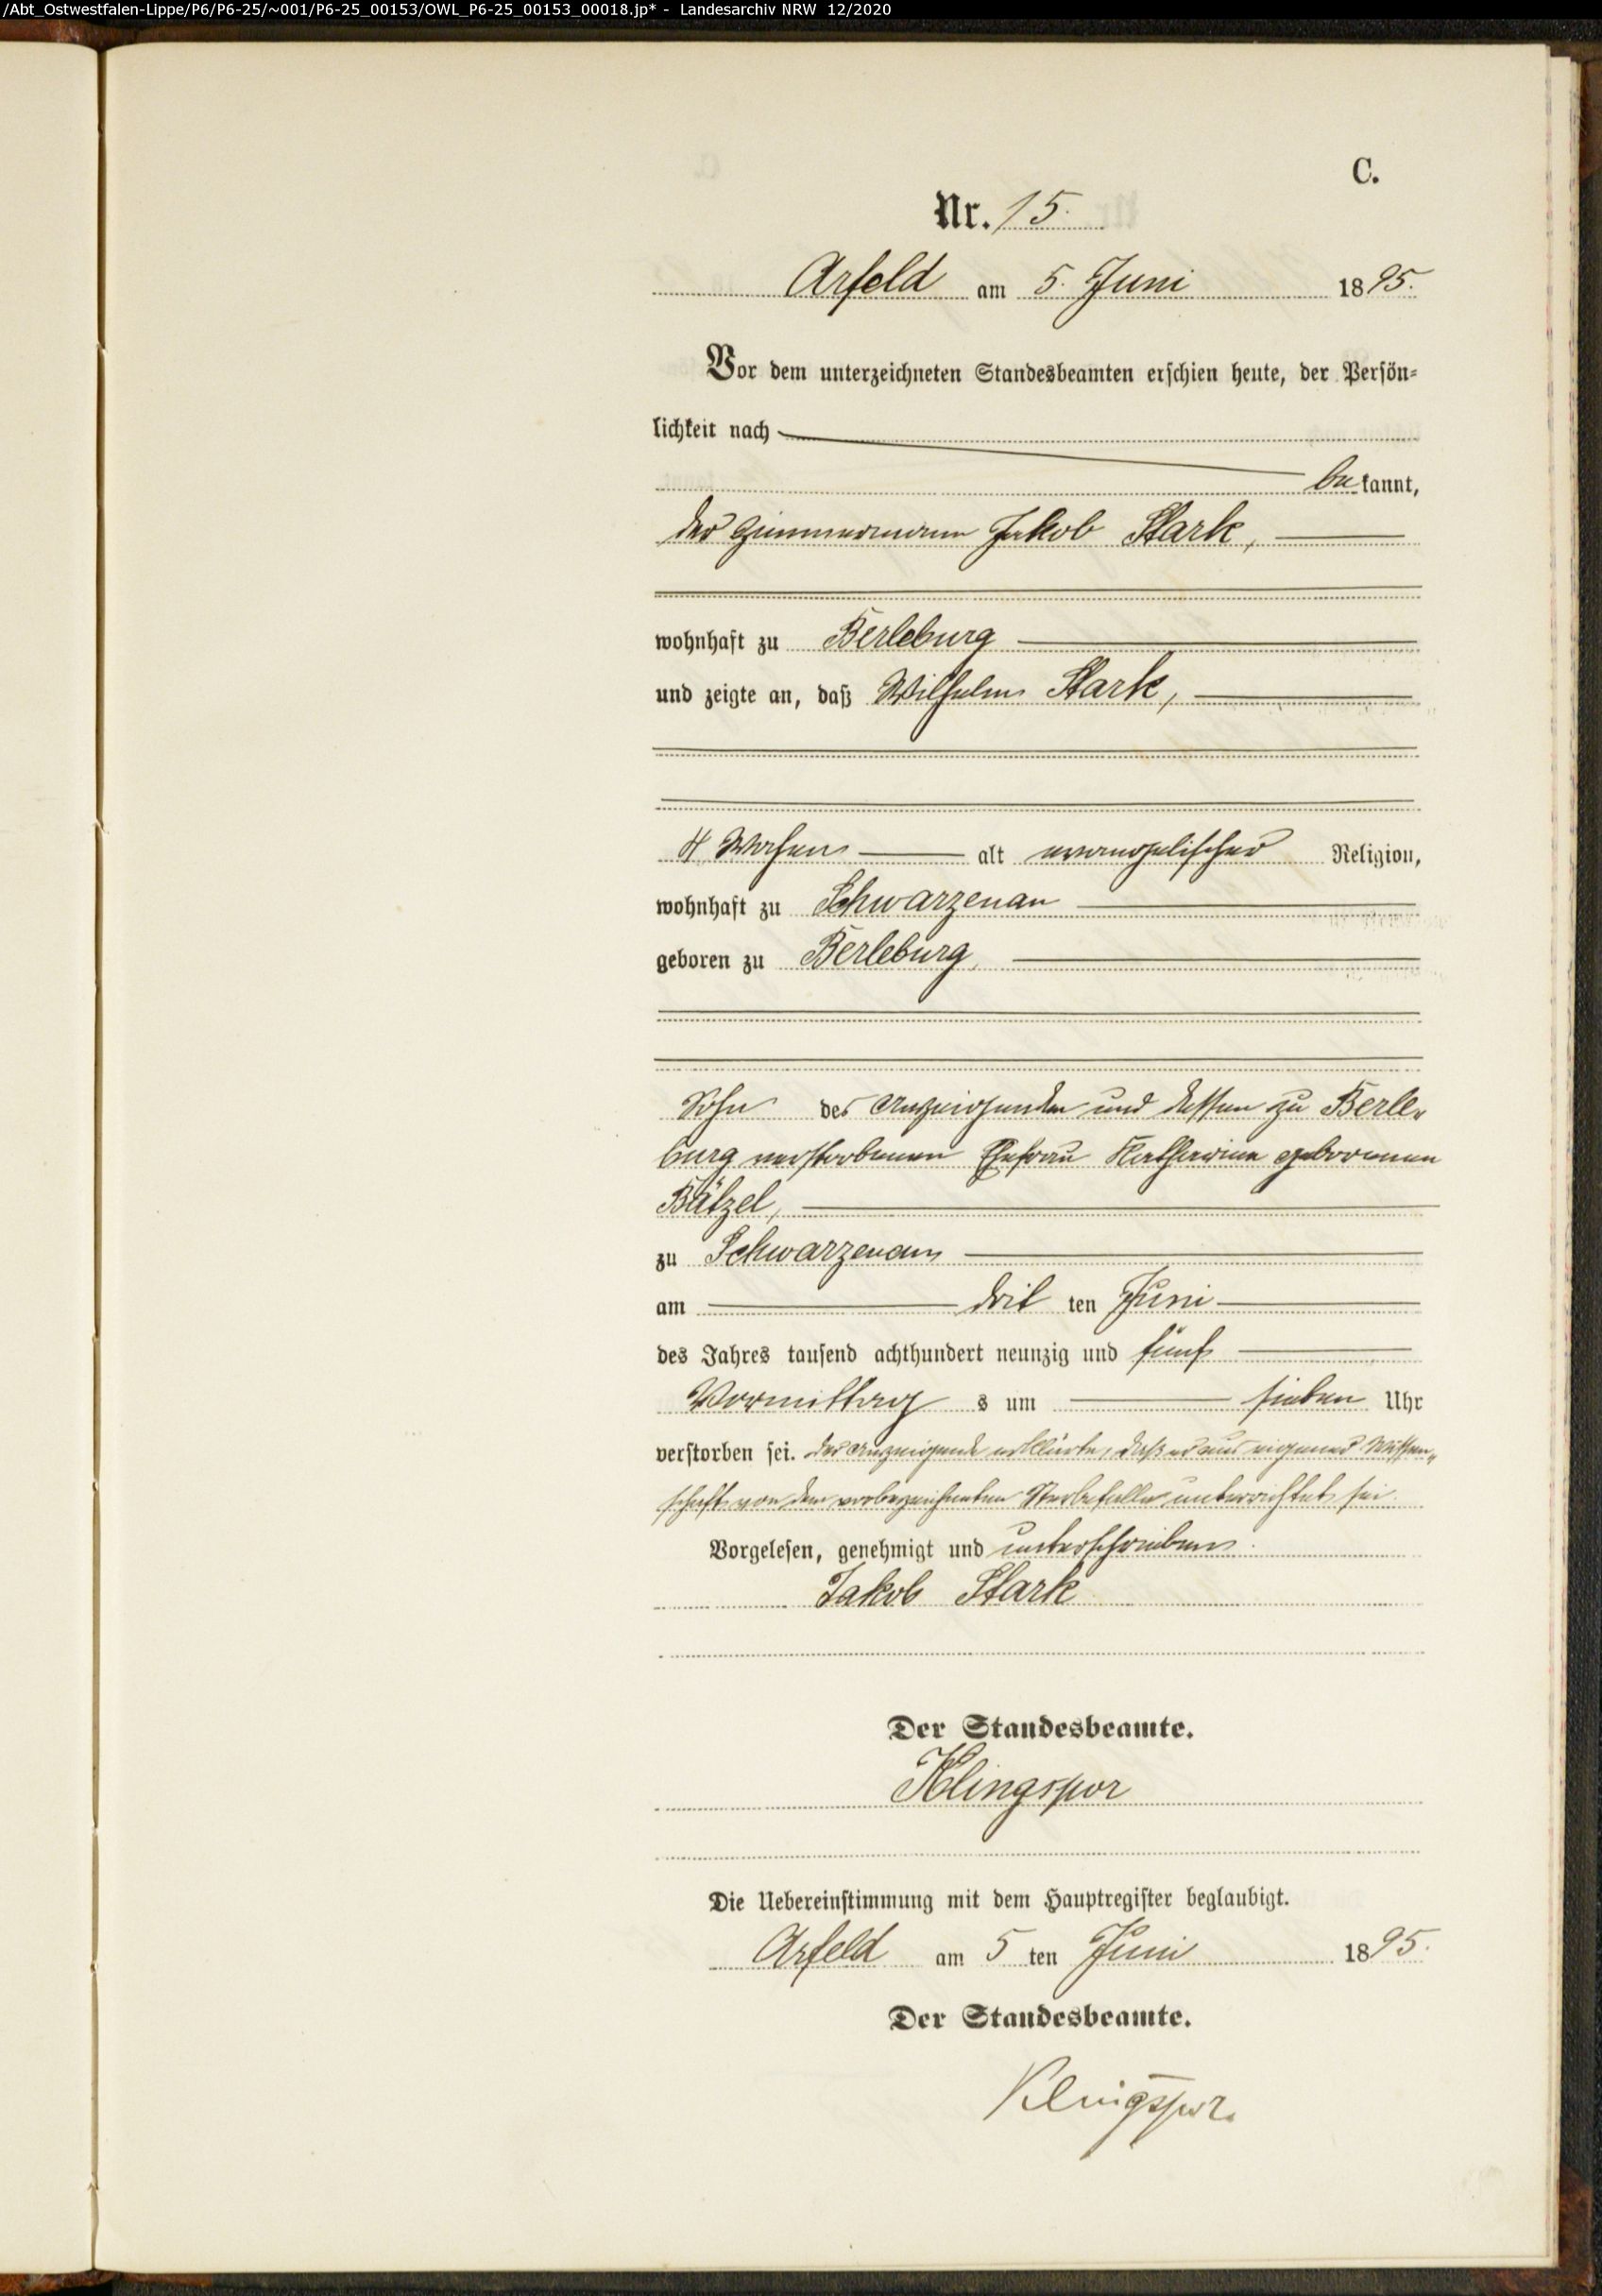 /Abt_Ostwestfalen-Lippe/P6/P6-25/~001/P6-25_00153/OWL_P6-25_00153_00018.jp* - Landesarchiv NRW 12/2020
C.
Nr. 15.
Arfeld am 5. Juni 1895.
Vor dem unterzeichneten Standesbeamten erschien heute, der Persön-
lichkeit nach
bekannt,
der Zimmermann Jakob Stark,
wohnhaft zu Berleburg
und zeigte an, daß Wilhelm Stark,
4 Wochen alt evangelischer Religion,
wohnhaft zu Schwarzenau
geboren zu Berleburg,
Sohn des Anzeigenden und dessen zu Berle-
burg verstorbenen Ehefrau Katharine geborenen
Bätzel,
zu Schwarzenau
am drit ten Juni
des Jahres tausend achthundert neunzig und fünf
Vormittag s um sieben Uhr
verstorben sei. Der Anzeigende erklärte, daß er aus eigener Wissen-
schaft von dem vorbezeichneten Sterbefalle unterrichtet sei.
Vorgelesen, genehmigt und unterschrieben.
Jakob Stark
Der Standesbeamte.
Klingspor
Die Uebereinstimmung mit dem Hauptregister beglaubigt.
Arfeld am 5 ten Juni 1895.
Der Standesbeamte.
Klingspor.